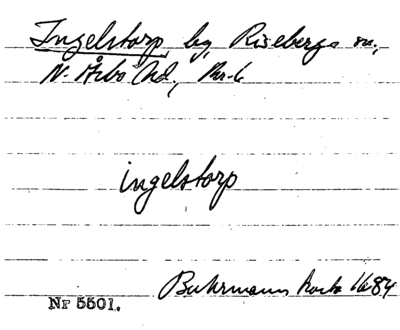 Ingelstorp, by, Riseberga sn,
N. Åsbo hd, Kr-l.
ingelstorp
Buhrmann karta 1684
Nr 5501.